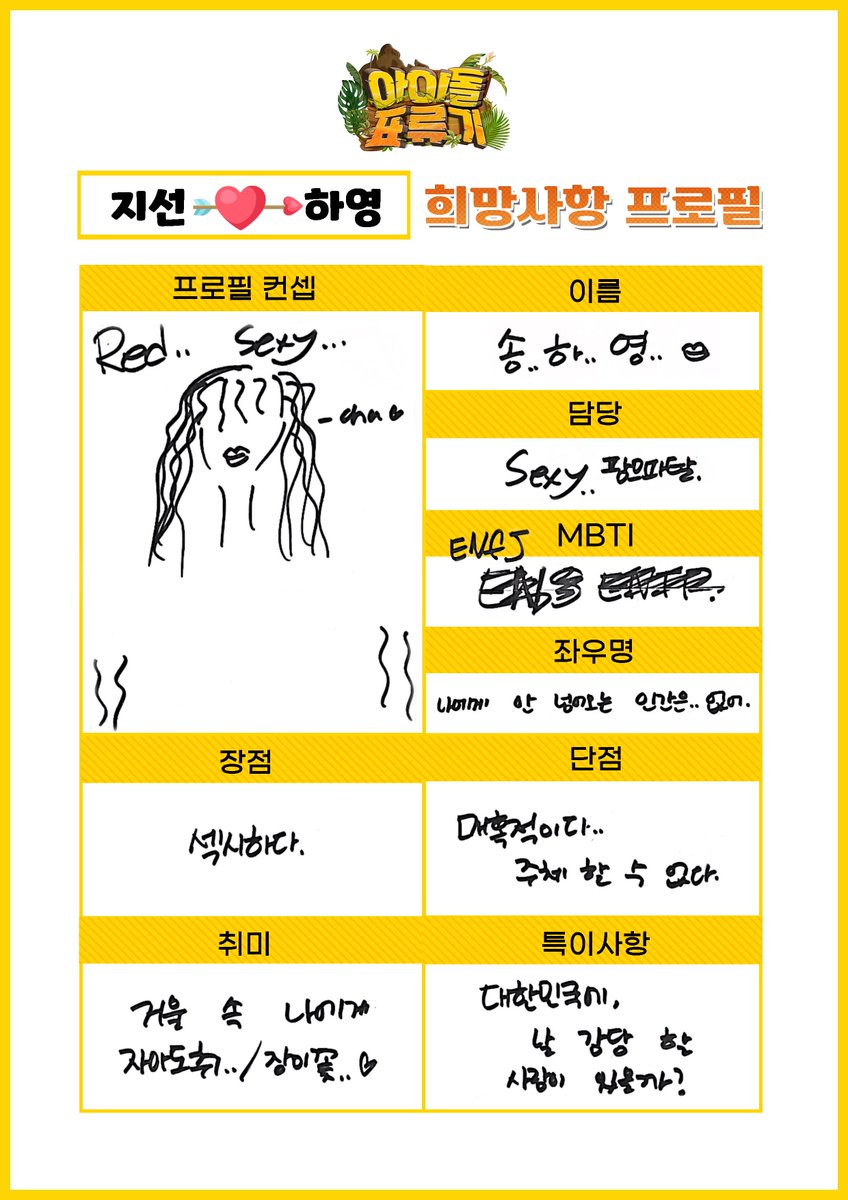 아이돌
표류기
지선 하영
희망사항 프로필
프로필 컨셉
Red.. Sexy...
-chu
이름
송..하..영..
담당
Sexy.. 팜므파탈.
MBTI
ENFJ
좌우명
나에게 안 넘어오는 인간은..없어.
장점
섹시하다.
단점
매혹적이다..
주체 할 수 없다.
취미
거울 속 나에게
자아도취../장미꽃..
특이사항
대한민국에,
날 감당 할
사람이 있을까?